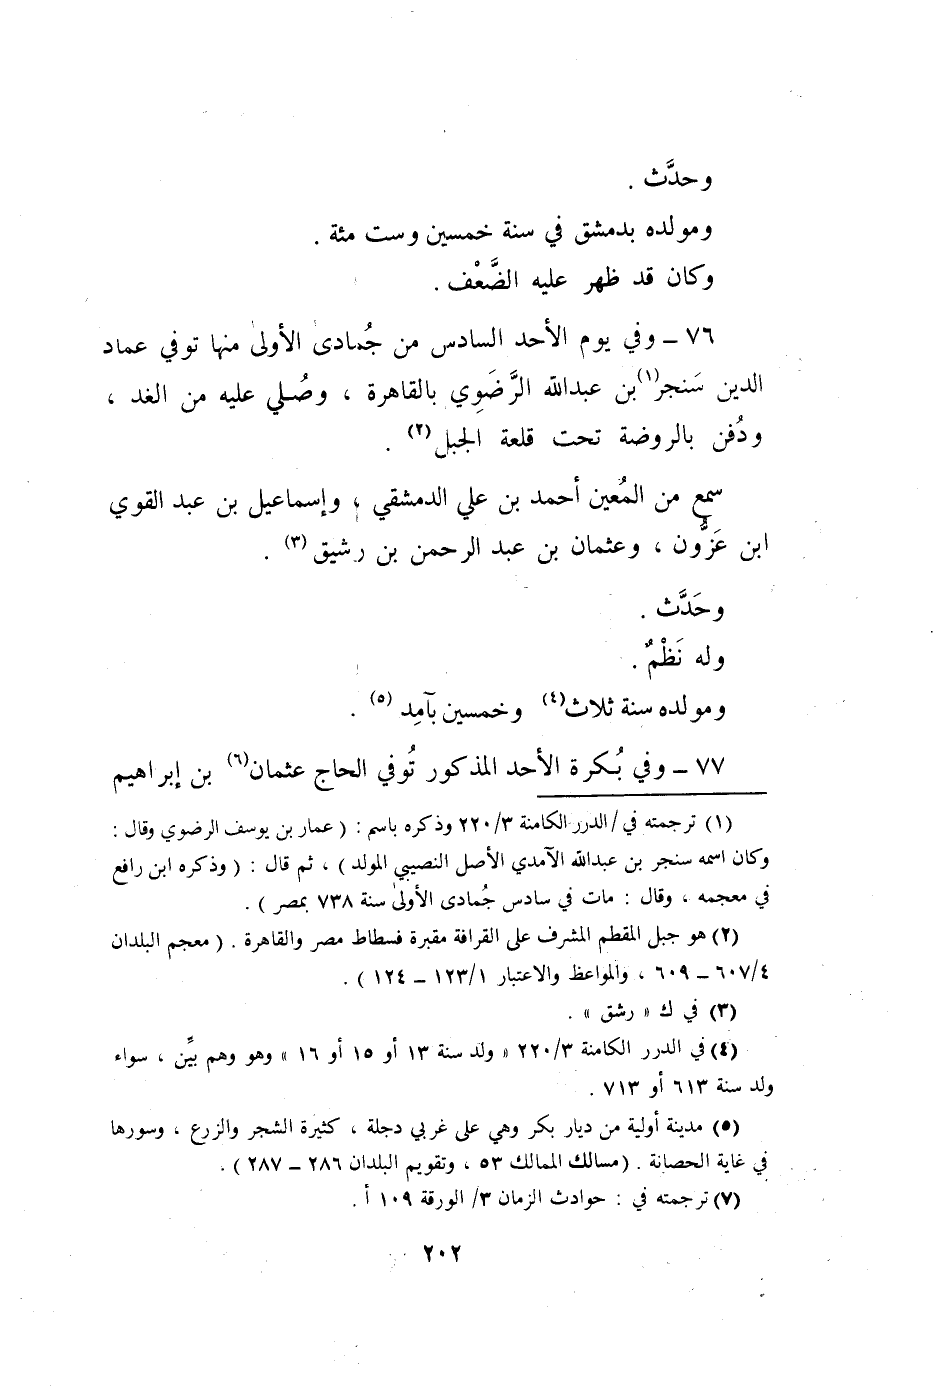 وحدَّث .
ومولده بدمشق في سنة خمسين وست مئة .
وكان قد ظهر عليه الضَّعْف .
٧٦ ــ وفي يوم الأحد السادس من جُمادى الأولىٰ منها توفي عماد
الدين سَنجر(١) بن عبدالله الرَّضَوِي بالقاهرة ، وصُلي عليه من الغد ،
ودُفن بالروضة تحت قلعة الجبل(٢) .
سمع من المُعين أحمد بن علي الدمشقي ، وإسماعيل بن عبد القوي
ابن عَزُّون ، وعثمان بن عبد الرحمن بن رشيق(٣) .
وحَدَّث .
وله نَظْمٌ .
ومولده سنة ثلاث(٤) وخمسين بآمِد(٥) .
٧٧ ــ وفي بُكرة الأحد المذكور تُوفي الحاج عثمان(٦) بن إبراهيم
(١) ترجمته في / الدرر الكامنة ٢٢٠/٣ وذكره باسم : ( عمار بن يوسف الرضوي وقال :
وكان اسمه سنجر بن عبدالله الآمدي الأصل النصيبي المولد ) ، ثم قال : ( وذكره ابن رافع
في معجمه ، وقال : مات في سادس جُمادى الأولىٰ سنة ٧٣٨ بمصر ) .
(٢) هو جبل المقطم المشرف على القرافة مقبرة فسطاط مصر والقاهرة . ( معجم البلدان
٦٠٧/٤ ــ ٦٠٩ ، والمواعظ والاعتبار ١٢٣/١ ــ ١٢٤ ) .
(٣) في ك « رشق » .
(٤) في الدرر الكامنة ٢٢٠/٣ « ولد سنة ١٣ أو ١٥ أو ١٦ » وهو وهم بيِّن ، سواء
ولد سنة ٦١٣ أو ٧١٣ .
(٥) مدينة أولية من ديار بكر وهي على غربي دجلة ، كثيرة الشجر والزرع ، وسورها
في غاية الحصانة . (مسالك الممالك ٥٣ ، وتقويم البلدان ٢٨٦ ــ ٢٨٧ ) .
(٧) ترجمته في : حوادث الزمان ٣/ الورقة ١٠٩ أ .
٢٠٢